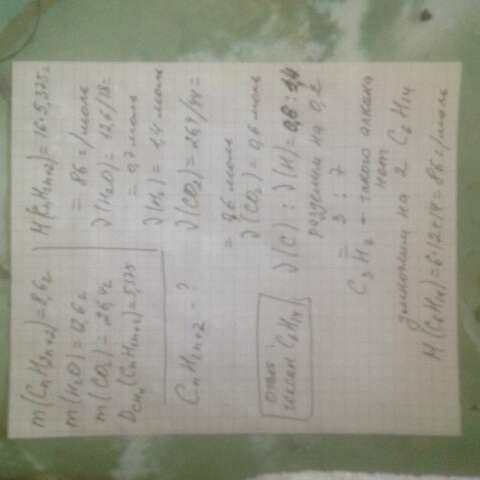 m(CnH2n+2)=8,6г
m(H2O)=12,6г
m(CO2)=26,4г
DCH4(CnH2n+2)=5,375
CnH2n+2 - ?
Ответ
гексан C6H14
M(CnH2n+2)=16·5,375=
= 86 г/моль
ν(H2O)=12,6/18=
= 0,7 моль
ν(H)= 1,4 моль
ν(CO2)=26,4/44=
= 0,6 моль
ν(CO2)=0,6 моль
ν(C) : ν(H)=0,6 : 1,4
разделим на 0,2
= 3 : 7
C3H7 - такого алкана
нет
умножим на 2 C6H14
M(C6H14)=6·12+14=86 г/моль